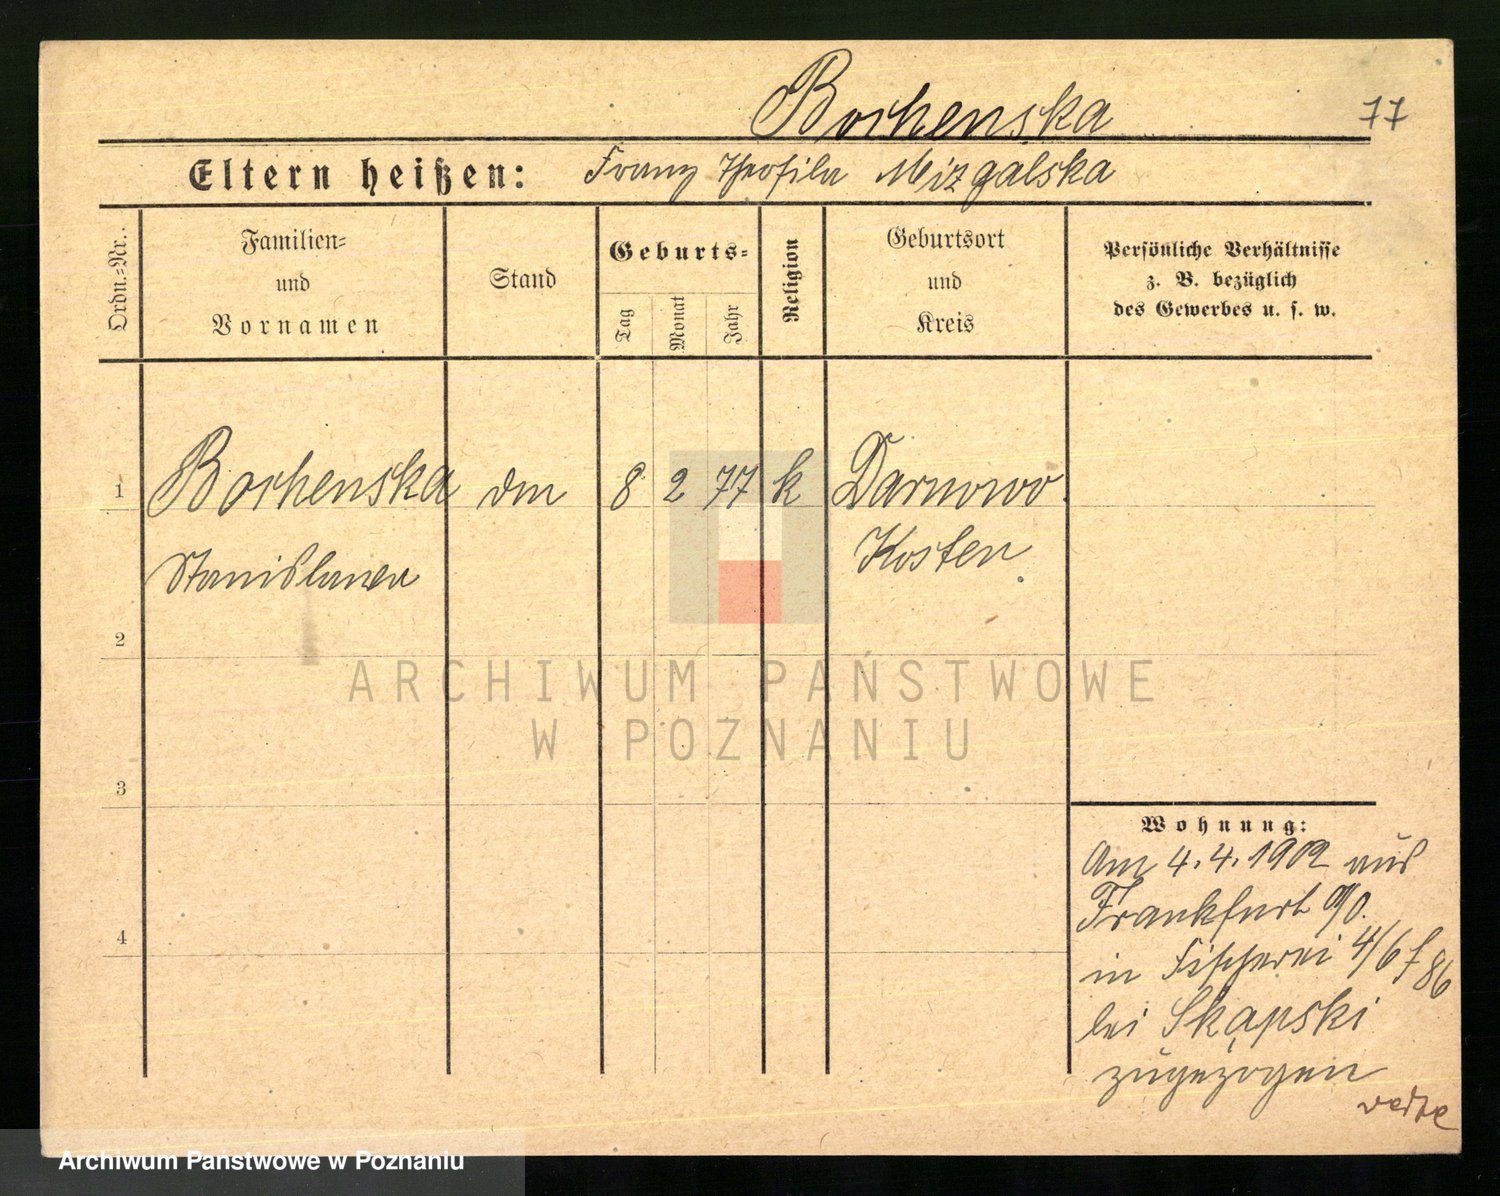 Bochenska 77
Eltern heißen: Franz Theofila Mizgalska
Ordn.-Nr.
Familien-
und
Vornamen
Stand
Geburts-
Tag
Monat
Jahr
Religion
Geburtsort
und
Kreis
Persönliche Verhältnisse
z. B. bezüglich
des Gewerbes u. s. w.
1 Bochenska 8 2 77 k Darnowo
Stanislawa Kosten
2
3
4
Wohnung:
Am 4.4.1902 aus
Frankfurt a/O.
in Fischerei 4/6
bei Skąpski
zugezogen
verte
ARCHIWUM PAŃSTWOWE
W POZNANIU
Archiwum Państwowe w Poznaniu